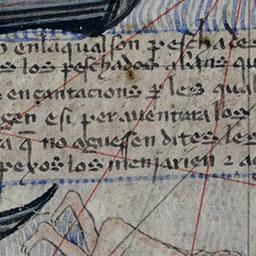 en laqual son peschades
los peschados abans qu
encantacions per les qual
gen e si per auentura los
a q no aguessen dites les
pexos los menjarien 2 a